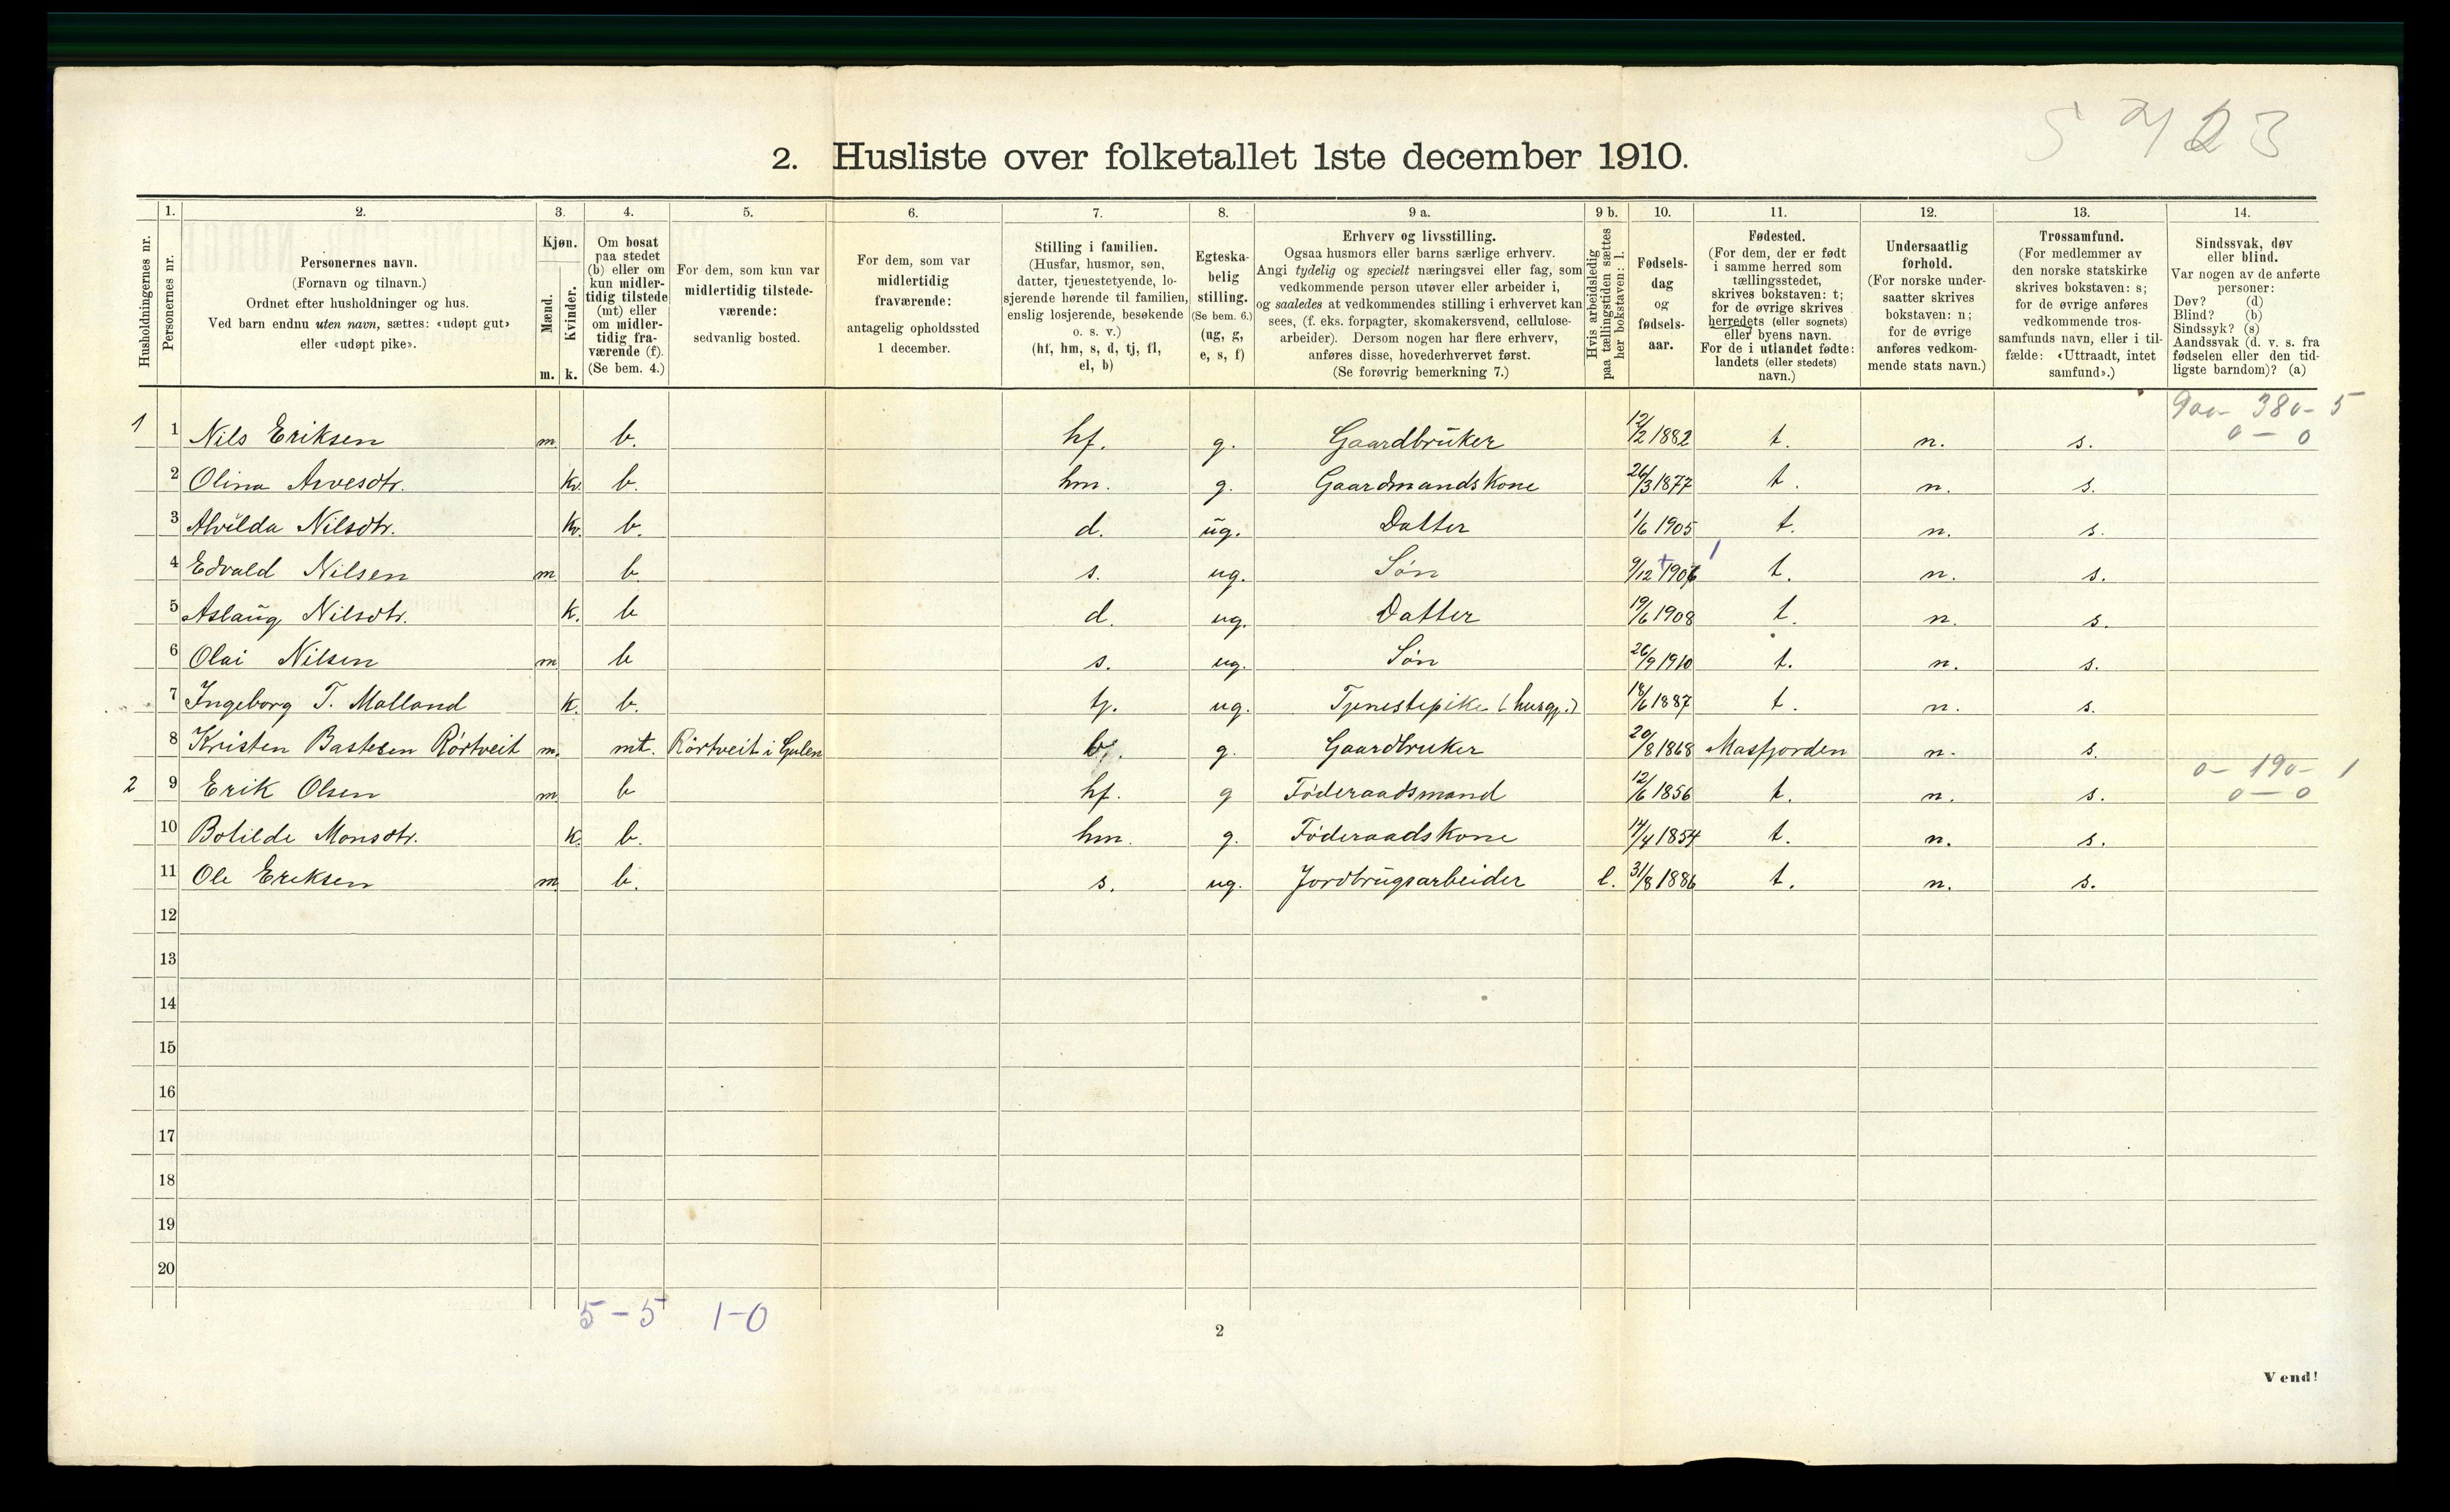 5 2/ 23
2. Husliste over folketallet 1ste december 1910.
Husholdningernes nr.
1.
Personernes nr.
2.
Personernes navn.
(Fornavn og tilnavn.)
Ordnet efter husholdninger og hus.
Ved barn endnu uten navn, sættes: «udøpt gut»
eller «udøpt pike».
3.
Kjøn.
Mænd.
m.
Kvinder.
k.
4.
Om bosat
paa stedet
(b) eller om
kun midler-
tidig tilstede
(mt) eller
om midler-
tidig fra-
værende (f).
(Se bem. 4.)
5.
For dem, som kun var
midlertidig tilstede-
værende:
sedvanlig bosted.
6.
For dem, som var
midlertidig
fraværende:
antagelig opholdssted
1 december.
7.
Stilling i familien.
(Husfar, husmor, søn,
datter, tjenestetyende, lo-
sjerende hørende til familien,
enslig losjerende, besøkende
o. s. v.)
(hf, hm, s, d, tj, fl,
el, b)
8.
Egteska-
belig
stilling.
(Se bem. 6.)
(ug, g,
e, s, f)
9 a.
Erhverv og livsstilling.
Ogsaa husmors eller barns særlige erhverv.
Angi tydelig og specielt næringsvei eller fag, som
vedkommende person utøver eller arbeider i,
og saaledes at vedkommendes stilling i erhvervet kan
sees, (f. eks. forpagter, skomakersvend, cellulose-
arbeider). Dersom nogen har flere erhverv,
anføres disse, hovederhvervet først.
(Se forøvrig bemerkning 7.)
9 b.
Hvis arbeidsledig
paa tællingstiden sættes
her bokstaven: l.
10.
Fødsels-
dag
og
fødsels-
aar.
11.
Fødested.
(For dem, der er født
i samme herred som
tællingsstedet,
skrives bokstaven: t;
for de øvrige skrives
herredets (eller sognets)
eller byens navn.
For de i utlandet fødte:
landets (eller stedets)
navn.)
12.
Undersaatlig
forhold.
(For norske under-
saatter skrives
bokstaven: n;
for de øvrige
anføres vedkom-
mende stats navn.)
13.
Trossamfund.
(For medlemmer av
den norske statskirke
skrives bokstaven: s;
for de øvrige anføres
vedkommende tros-
samfunds navn, eller i til-
fælde: «Uttraadt, intet
samfund».)
14.
Sindssvak, døv
eller blind.
Var nogen av de anførte
personer:
Døv? (d)
Blind? (b)
Sindssyk? (s)
Aandssvak (d. v. s. fra
fødselen eller den tid-
ligste barndom)? (a)
900- 380- 5
1 1 Nils Eriksen m b. hf. g. Gaardbruker 12/2 1882 t. n. s. 0 - 0
2 Olina Arvesdtr. kv. b. hm. g. Gaardmandskone 26/3 1877 t. n. s.
3 Alvilda Nilsdtr. kv. b. d. ug. Datter 1/6 1905 t. n. s.
4 Edvald Nilsen m b. s. ug. Søn 9/12 + 1906 / t. n. s.
5 Aslaug Nilsdtr. k. b d. ug. Datter 19/6 1908 t. n. s.
6 Olai Nilsen m b s. ug. Søn 26/9 1910 t. n. s.
7 Ingeborg T. Molland k. b. tj. ug. Tjenestepike (husgj.) 18/6 1887 t. n. s.
8 Kristen Bastesen Rørtveit m. mt. Rørtveit i Gulen b. g. Gaardbruker 20/8 1868 Masfjorden n. s.
0- 190- 1
2 9 Erik Olsen m b hf. g Føderaadsmand 12/6 1856 t. n. s. 0 - 0
10 Botilde Monsdtr. k. b. hm. g. Føderaadskone 14/4 1854 t. n. s.
11 Ole Eriksen m b. s. ug. Jordbrugsarbeider l. 31/8 1886 t. n. s.
12
13
14
15
16
17
18
19
20
5 - 5 1 - 0
2
Vend!